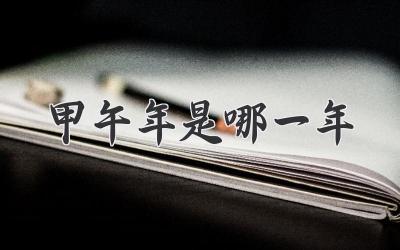 甲午年是哪一年